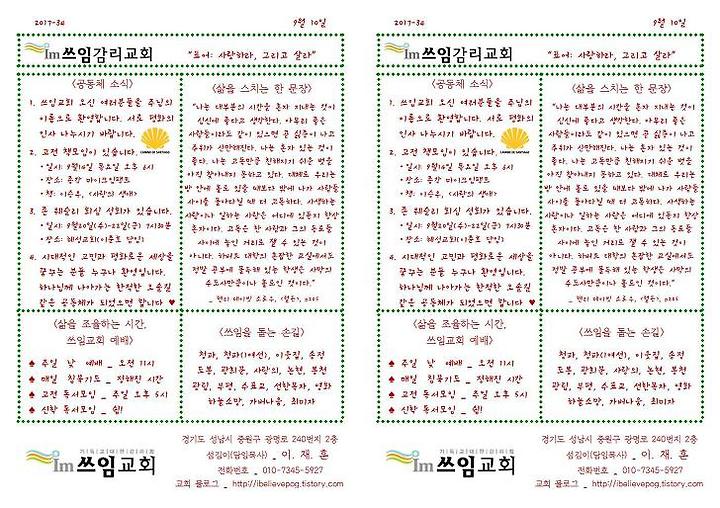 2017-34
9월 10일
Im쓰임감리교회
"표어: 사랑하라, 그리고 살라"
<공동체 소식>
1. 쓰임교회 오신 여러분들을 주님의
이름으로 환영합니다. 서로 평화의
인사 나누시기 바랍니다.
2. 고전 책모임이 있습니다.
• 일시: 9월14일 목요일 오후 6시
• 장소: 종각 마이크임팩트
• 책: 이승우, <사랑의 생애>
3. 존 웨슬리 회심 성회가 있습니다.
• 일시: 9월20일(수)-22일(금) 7시30분
• 장소: 혜성교회(이충호 담임)
4. 시대적인 고민과 평화로운 세상을
꿈꾸는 분들 누구나 환영입니다.
하나님께 나아가는 한적한 오솔길
같은 공동체가 되었으면 합니다 ♥
<삶을 스치는 한 문장>
"나는 대부분의 시간을 혼자 지내는 것이
심신에 좋다고 생각한다. 아무리 좋은
사람들이라도 같이 있으면 곧 싫증이 나고
주위가 산만해진다. 나는 혼자 있는 것이
좋다. 나는 고독만큼 친해지기 쉬운 벗을
아직 찾아내지 못하고 있다. 대체로 우리는
방 안에 홀로 있을 때보다 밖에 나가 사람들
사이를 돌아다닐 때 더 고독하다. 사색하는
사람이나 일하는 사람은 어디에 있든지 항상
혼자이다. 고독은 한 사람과 그의 동료들
사이에 놓인 거리로 잴 수 있는 것이
아니다. 하버드 대학의 혼잡한 교실에서도
정말 공부에 몰두해 있는 학생은 사막의
수도사만큼이나 홀로인 것이다."
_ 헨리 데이빗 소로우, <월든>, p205
<삶을 조율하는 시간,
쓰임교회 예배>
♠ 주일 낮 예배 _ 오전 11시
♠ 매일 침묵기도 _ 정해진 시간
♠ 고전 독서모임 _ 주일 오후 5시
♠ 신학 독서모임 _ 쉼!
<쓰임을 돕는 손길>
청파, 청파(1여선), 이웃길, 송전
도봉, 광희문, 사랑의, 논현, 부천
광림, 부평, 수표교, 선한목자, 영화
하늘소망, 가버나움, 희미자
Im쓰임교회
경기도 성남시 중원구 광명로 240번지 2층
섬김이(담임목사) _ 이 재 훈
전화번호 _ 010-7345-5927
교회 블로그 _ http://ibelievepog.tistory.com
2017-34
9월 10일
Im쓰임감리교회
"표어: 사랑하라, 그리고 살라"
<공동체 소식>
1. 쓰임교회 오신 여러분들을 주님의
이름으로 환영합니다. 서로 평화의
인사 나누시기 바랍니다.
2. 고전 책모임이 있습니다.
• 일시: 9월14일 목요일 오후 6시
• 장소: 종각 마이크임팩트
• 책: 이승우, <사랑의 생애>
3. 존 웨슬리 회심 성회가 있습니다.
• 일시: 9월20일(수)-22일(금) 7시30분
• 장소: 혜성교회(이충호 담임)
4. 시대적인 고민과 평화로운 세상을
꿈꾸는 분들 누구나 환영입니다.
하나님께 나아가는 한적한 오솔길
같은 공동체가 되었으면 합니다 ♥
<삶을 스치는 한 문장>
"나는 대부분의 시간을 혼자 지내는 것이
심신에 좋다고 생각한다. 아무리 좋은
사람들이라도 같이 있으면 곧 싫증이 나고
주위가 산만해진다. 나는 혼자 있는 것이
좋다. 나는 고독만큼 친해지기 쉬운 벗을
아직 찾아내지 못하고 있다. 대체로 우리는
방 안에 홀로 있을 때보다 밖에 나가 사람들
사이를 돌아다닐 때 더 고독하다. 사색하는
사람이나 일하는 사람은 어디에 있든지 항상
혼자이다. 고독은 한 사람과 그의 동료들
사이에 놓인 거리로 잴 수 있는 것이
아니다. 하버드 대학의 혼잡한 교실에서도
정말 공부에 몰두해 있는 학생은 사막의
수도사만큼이나 홀로인 것이다."
_ 헨리 데이빗 소로우, <월든>, p205
<삶을 조율하는 시간,
쓰임교회 예배>
♠ 주일 낮 예배 _ 오전 11시
♠ 매일 침묵기도 _ 정해진 시간
♠ 고전 독서모임 _ 주일 오후 5시
♠ 신학 독서모임 _ 쉼!
<쓰임을 돕는 손길>
청파, 청파(1여선), 이웃길, 송전
도봉, 광희문, 사랑의, 논현, 부천
광림, 부평, 수표교, 선한목자, 영화
하늘소망, 가버나움, 희미자
Im쓰임교회
경기도 성남시 중원구 광명로 240번지 2층
섬김이(담임목사) _ 이 재 훈
전화번호 _ 010-7345-5927
교회 블로그 _ http://ibelievepog.tistory.com